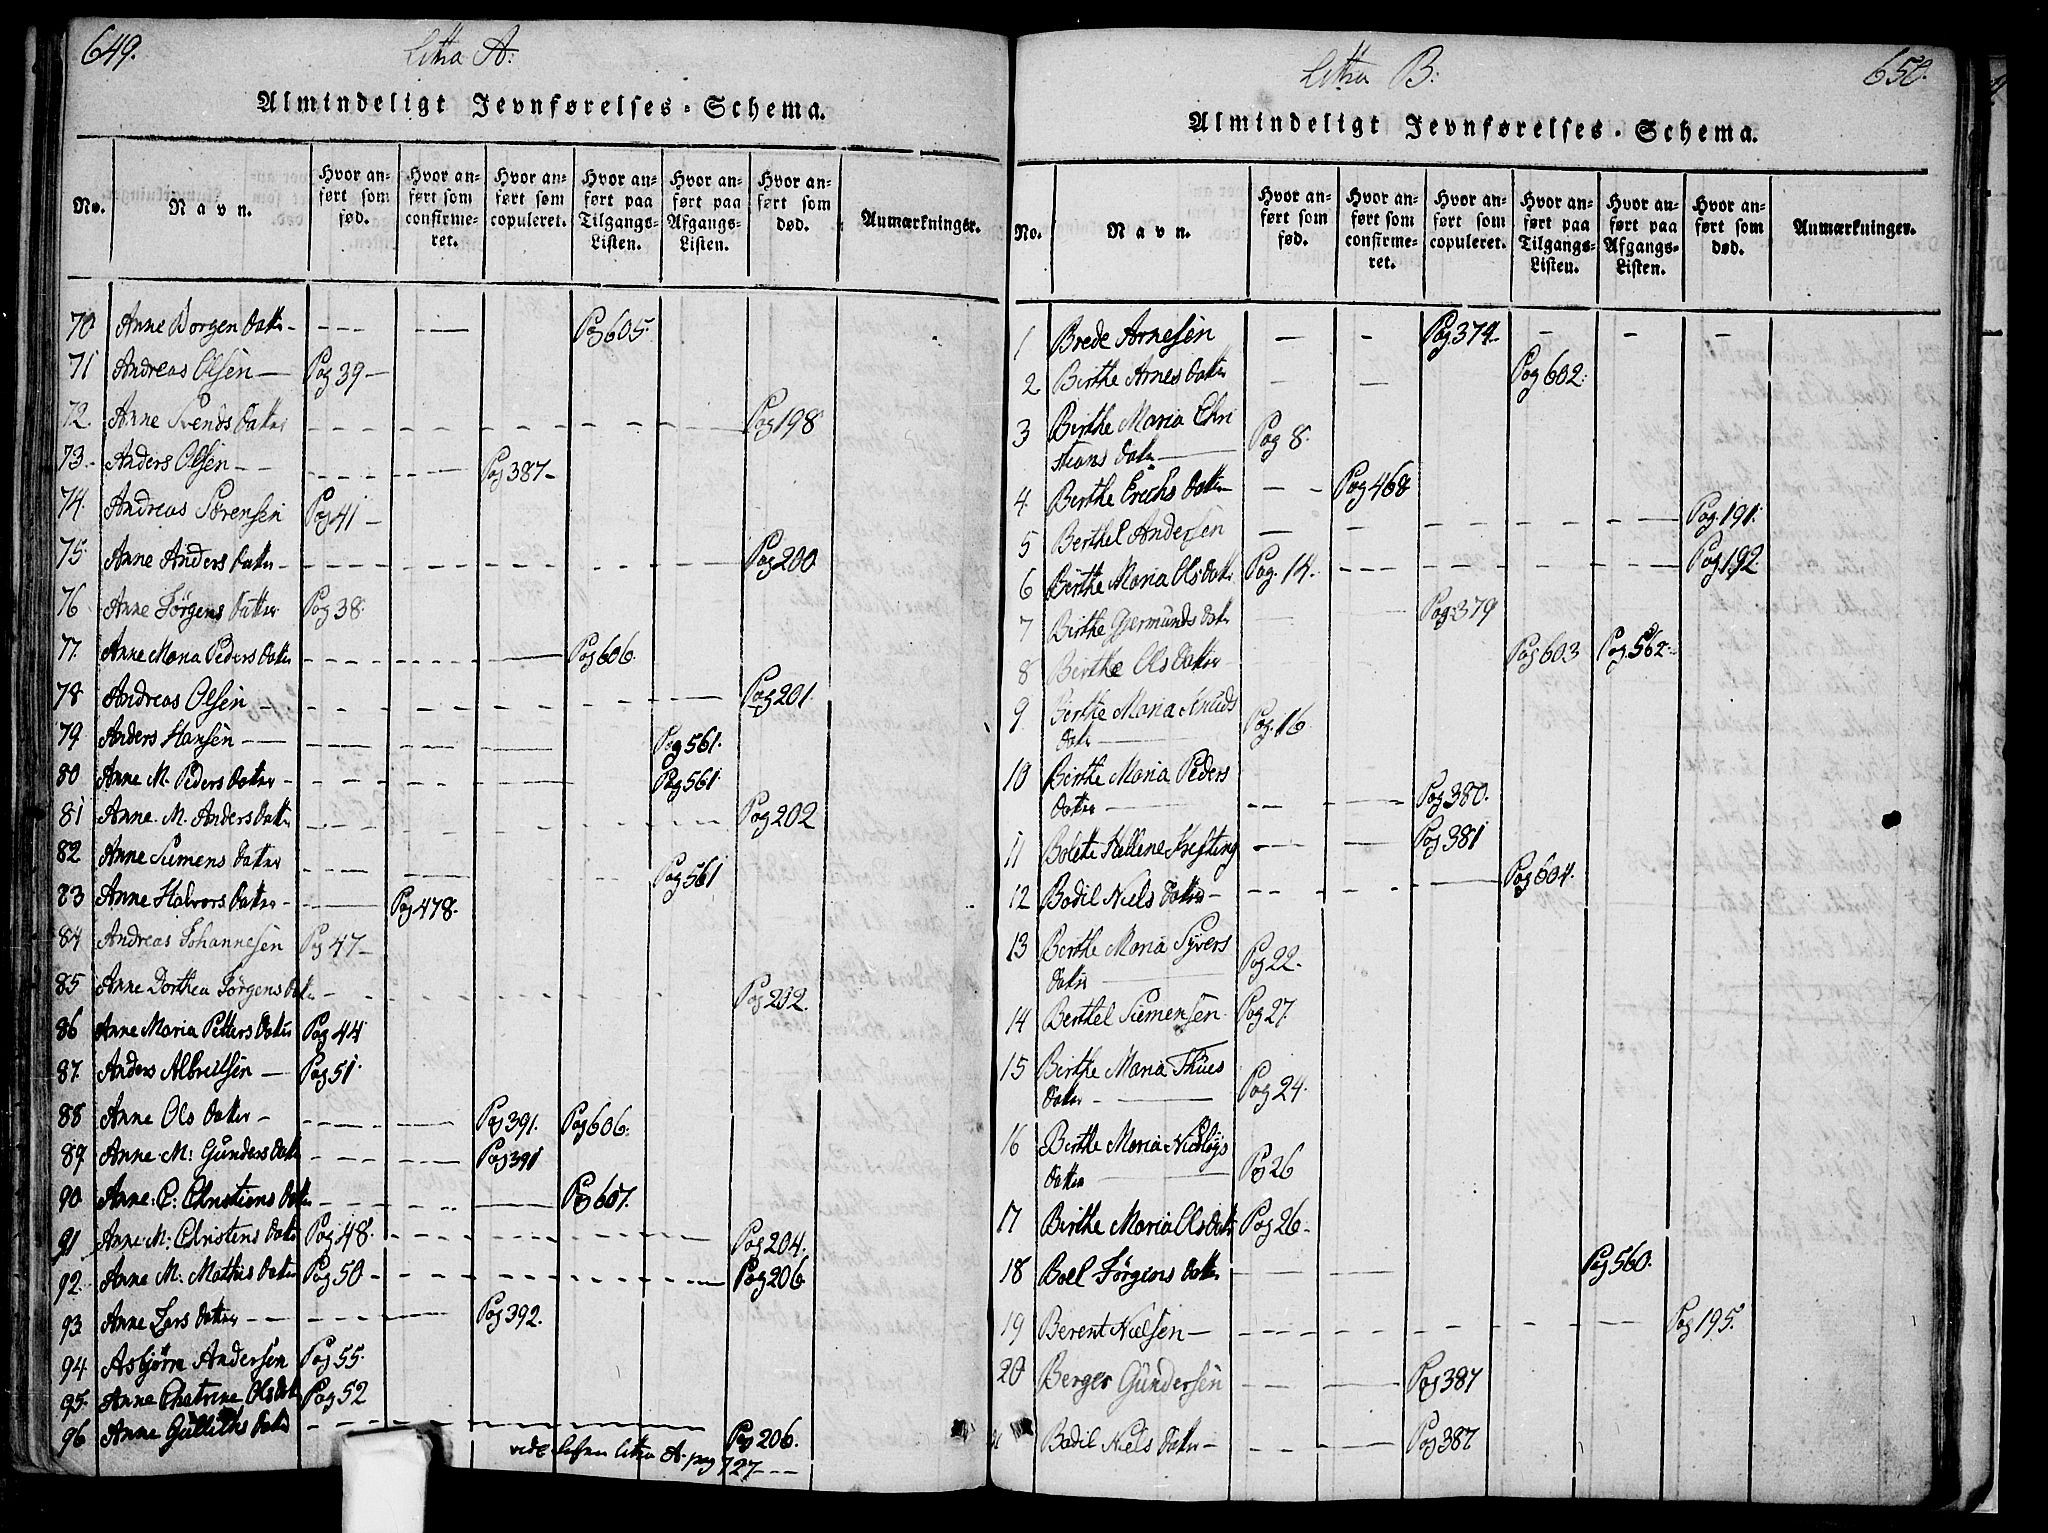 649.
Litra A:
Almindeligt Jevnførelses-Schema.
No. Navn. Hvor anført som fød. Hvor anført som confirmeret. Hvor anført som copuleret. Hvor anført paa Tilgangs-Listen. Hvor anført paa Afgangs-Listen. Hvor anført som død. Anmærkninger.
70 Anne Borgen datter - Pag 605.
71 Andreas Olsen - Pag 39 -
72. Anne Svends datter Pag 198
73. Anders Olsen - Pag 387 -
74. Andreas Sørensen Pag 41 -
75. Anne Anders datter - Pag 200
76 Anne Jørgens datter Pag 38.
77. Anne Maria Peders datter Pag 606.
78 Andreas Olsen - Pag 201.
79. Anders Hansen - Pag 561.
80 Anne M. Peders datter - Pag 561
81 Anne M. Anders datter Pag 202
82 Anne Simens datter Pag 561
83 Anne Halvors datter - Pag 478.
84 Andreas Johannesen Pag 47 -
85 Anne Dorthea Jørgens datter - Pag 202.
86 Anne Maria Petters datter Pag 44
87. Anders Albretsen - Pag 51.
88 Anne Ols datter - Pag 391. Pag 606.
89 Anne M: Gunders datter Pag 391
90 Anne C: Christians datter Pag 607.
91 Anne M: Christens datter Pag 48. Pag 204.
92. Anne M: Mathis datter Pag 50 Pag 206
93 Anne Lars datter Pag 392.
94 Asbjørn Andersen Pag 55.
95. Anne Chatrine Olsdatter Pag 52
96 Anne Gulliks datter Pag 206.
vide Litra A. pag 727
650.
Litra B:
Almindeligt Jevnførelses-Schema.
No. Navn. Hvor anført som fød. Hvor anført som confirmeret. Hvor anført som copuleret. Hvor anført paa Tilgangs-Listen. Hvor anført paa Afgangs-Listen. Hvor anført som død. Anmærkninger.
1 Brede Arnesen Pag 374
2 Birthe Arnes datter Pag 602.
3 Birthe Maria Chri
stians datter Pag 8.
4. Berthe Erichs datter Pag 468
5 Berthel Andersen Pag. 191.
6 Birthe Maria Olsdatter Pag. 14. Pag 192.
7 Birthe Gjermunds datter Pag 379
8 Berthe Ols datter Pag 603 Pag. 562.
9 Berthe Maria Knuds
datter Pag. 16
10 Birthe Maria Peders
datter Pag 380.
11 Bolette Hellene Krefting Pag 381
12 Bodil Niels datter - Pag 604.
13 Berthe Maria Syvers
datter Pag 22.
14 Berthel Simensen Pag 27.
15 Birthe Maria Thues
datter Pag 24.
16 Birthe Maria
datter Pag 26
17 Birthe Maria Olsdatter Pag 26.
18 Boel Jørgens datter Pag 560.
19 Berent Nielsen - Pag 195.
20 Berger Gundersen Pag 387
21 Bodil Niels datter - Pag 387